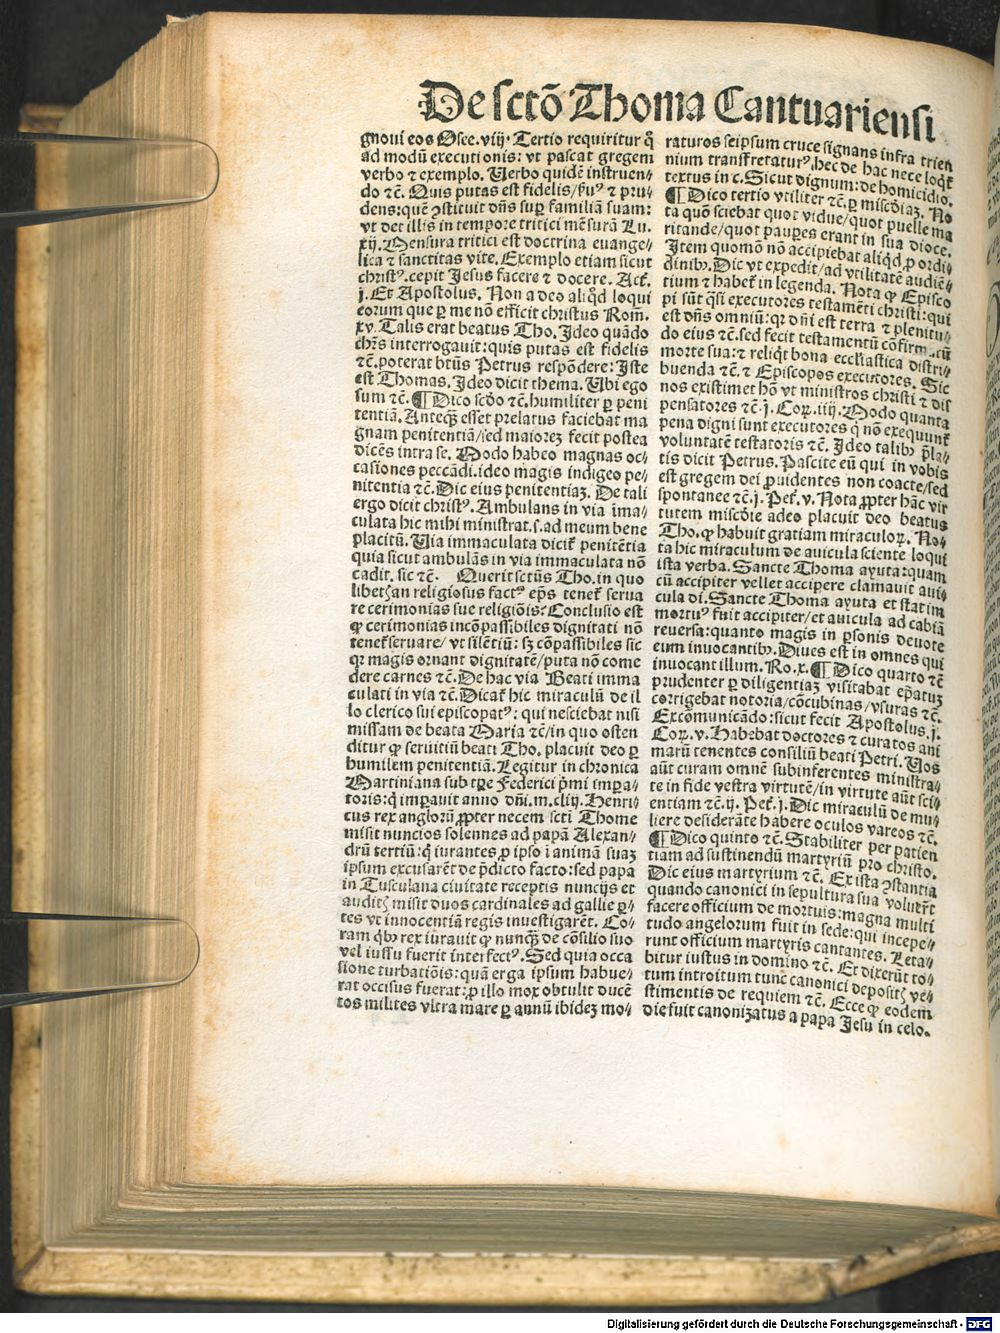 De sctō Thoma Cantuariensi
gnoui eos Osee. viij. Tertio requiritur q̄
ad modū executionis: vt pascat gregem
verbo ⁊ exemplo. Verbo quidē instruen⸗
do ⁊c̄. Quis putas est fidelis/ẜuꝰ ⁊ pru⸗
dens: quē ↄstituit dn̄s suꝑ familiā suam:
vt det illis in tempore tritici mēsurā Lu.
xij. Mensura tritici est doctrina euange⸗
lica ⁊ sanctitas vite. Exemplo etiam sicut
christꝰ. cepit Jesus facere ⁊ docere. Act̄.
j. Et Apostolus. Non adeo aliq̇d loqui
eorum que ꝑ me nō efficit christus Rom̄.
xv. Talis erat beatus Tho. Ideo quādo
chr̄s interrogauit: quis putas est fidelis
⁊c̄. poterat btūs Petrus respōdere: Iste
est Thomas. Ideo dicit thema. Ubi ego
sum ⁊c̄. ¶ Dico scd̄o ⁊c̄. humiliter ꝑ peni
tentiā. Anteqꝫ esset prelatus faciebat ma
gnam penitentiā/sed maiorez fecit postea
dicēs intra se. Modo habeo magnas oc⸗
casiones peccādi. ideo magis indigeo pe⸗
nitentia ⁊c̄. Dic eius penitentiaꝫ. De tali
ergo dicit christꝰ. Ambulans in via ima⸗
culata hic mihi ministrat. s. ad meum bene
placitū. Via immaculata dicit̄ penitētia
quia sicut ambulās in via immaculata nō
cadit. sic ⁊c̄. Querit sctūs Tho. in quo
libet/an religiosus factꝰ ep̄s tenet̄ serua
re cerimonias sue religiōis? Conclusio est
ꝙ cerimonias incōpassibiles dignitati nō
tenet̄ seruare/ vt silētiū: sꝫ cōpassibiles sic
qꝛ magis ornant dignitatē/puta nō come
dere carnes ⁊c̄. De hac via Beati imma
culati in via ⁊c̄. Dicat̄ hic miraculū de il
lo clerico sui episcopatꝰ: qui nesciebat nisi
missam de beata Maria ⁊c̄/in quo osten
ditur ꝙ seruitiū beati Tho. placuit deo ꝑ
humilem penitentiā. Legitur in chronica
Martiniana sub tp̄e Federici p̄mi impa⸗
toris: q̇ imꝑauit anno dn̄i. m. cliij. Henri⸗
cus rex anglorū ꝓpter necem scti Thome
misit nuncios solennes ad papā Alexan⸗
drū tertiū: q̇ iurantes ꝓ ipso ī animā suaꝫ
ipsum excusarēt de p̄dicto facto: sed papa
in Tusculana ciuitate receptis nuncijs et
auditꝭ misit duos cardinales ad gallie ꝑ⸗
tes vt innocentiā regis inuestigarēt. Co⸗
ram q̇bꝰ rex iurauit ꝙ nunqꝫ de cōsilio suo
vel iussu fuerit interfectꝰ. Sed quia occa
sione turbatiōis: quā erga ipsum habue⸗
rat occisus fuerat: ꝓ illo mox obtulit ducē
tos milites vltra mare ꝑ annū ibidez mo⸗
raturos seipsum cruce signans infra trien
nium transfretaturꝰ. hec de hac nece loqt̄
textus in c. Sicut dignum: de homicidio.
¶ Dico tertio vtiliter ⁊c̄. ꝑ miscd̄iaꝫ. No
ta quō sciebat quot vidue/quot puelle ma
ritande/quot pauꝑes erant in sua dioce.
Item quomō nō accipiebat aliq̇d ꝓ ordi
dinibꝰ. Dic vt expedit/ad vtilitatē audiē⸗
tium ⁊ habet̄ in legenda. Nota ꝙ Episco
pi sūt q̇si executores testamēti christi: qui
est dn̄s omniū: qꝛ dn̄i est terra ⁊ plenitu⸗
do eius ⁊c̄. sed fecit testamentū cōfirmatū
morte sua: ⁊ reliq̇t bona ecclīastica distri⸗
buenda ⁊c̄. ⁊ Episcopos executores. Sic
nos existimet hō vt ministros christi ⁊ dis
pensatores ⁊c̄. j. Coꝝ. iiij. Modo quanta
pena digni sunt executores q̇ nō exequunt̄
voluntatē testatoris ⁊c̄. Ideo talibꝰ p̄la⸗
tis dicit Petrus. Pascite eū qui in vobis
est gregem dei ꝓuidentes non coacte/sed
spontanee ⁊c̄. j. Pet̄. v. Nota ꝓpter hāc vir
tutem miscd̄ie adeo placuit deo beatus
Tho. ꝙ habuit gratiam miraculoꝝ. No⸗
ta hic miraculum de auicula sciente loqui
ista verba. Sancte Thoma ayuta: quam
cū accipiter vellet accipere clamauit aui⸗
cula di. Sancte Thoma ayuta et statim
mortuꝰ fuit accipiter/et auicula ad cabiā
reuersa: quanto magis in ꝑsonis deuote
eum inuocantibꝰ. Diues est in omnes qui
inuocant illum. Ro. x. ¶ Dico quarto ⁊c̄
prudenter ꝑ diligentiaꝫ visitabat ep̄atuꝫ
corrigebat notoria/cōcubinas/vsuras ⁊c̄.
Excōmunicādo: sicut fecit Apostolus. j.
Coꝝ. v. Habebat doctores ⁊ curatos ani
marū tenentes consiliū beati Petri. Vos
aūt curam omnē subinferentes ministra⸗
te in fide vestra virtutē/in virtute aūt sci⸗
entiam ⁊c̄. ij. Pet̄. j. Dic miraculū de mu⸗
liere desiderāte habere oculos vareos ⁊c̄.
¶ Dico quinto ⁊c̄. Stabiliter per patien
tiam ad sustinendū martyriū pro christo.
Dic eius martyrium ⁊c̄. Ex ista ↄstantia
quando canonici in sepultura sua volueȓt
facere officium de mortuis: magna multi
tudo angelorum fuit in sede: qui incepe⸗
runt officium martyris cantantes. Leta⸗
bitur iustus in domino ⁊c̄. Et dixerūt to⸗
tum introitum tunc canonici depositꝭ ve⸗
stimentis de requiem ⁊c̄. Ecce ꝙ eodem
die fuit canonizatus a papa Jesu in celo.
Digitalisierung gefördert durch die Deutsche Forschungsgemeinschaft - DFG